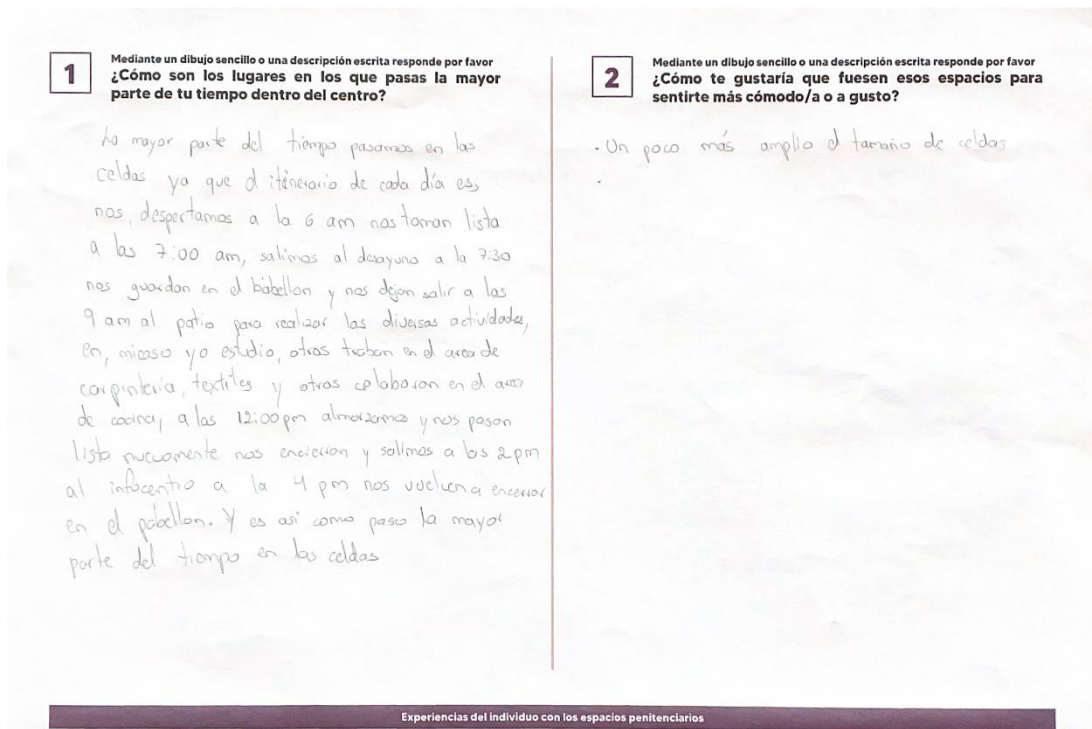 1
Mediante un dibujo sencillo o una descripción escrita responde por favor
¿Cómo son los lugares en los que pasas la mayor
parte de tu tiempo dentro del centro?
La mayor parte del tiempo pasamos en las
celdas ya que el itinerario de cada día es;
nos, despertamos a la 6 am nos toman lista
a las 7:00 am, salimos al desayuno a la 7:30
nos guardan en el babellon y nos dejan salir a las
9 am al patio para realizar las diversas actividades,
en, micaso yo estudio, otros traban en el area de
carpinteria, textiles y otras colaboran en el area
de cocina, a las 12:00 pm almorzamos y nos pasan
lista nuevamente nos encierran y salimos a las 2 pm
al infocentro a la 4 pm nos vuelven a encerrar
en el pabellon. Y es así como paso la mayor
parte del tiempo en las celdas
2
Mediante un dibujo sencillo o una descripción escrita responde por favor
¿Cómo te gustaría que fuesen esos espacios para
sentirte más cómodo/a o a gusto?
- Un poco más amplio el tamaño de celdas
-
Experiencias del individuo con los espacios penitenciarios